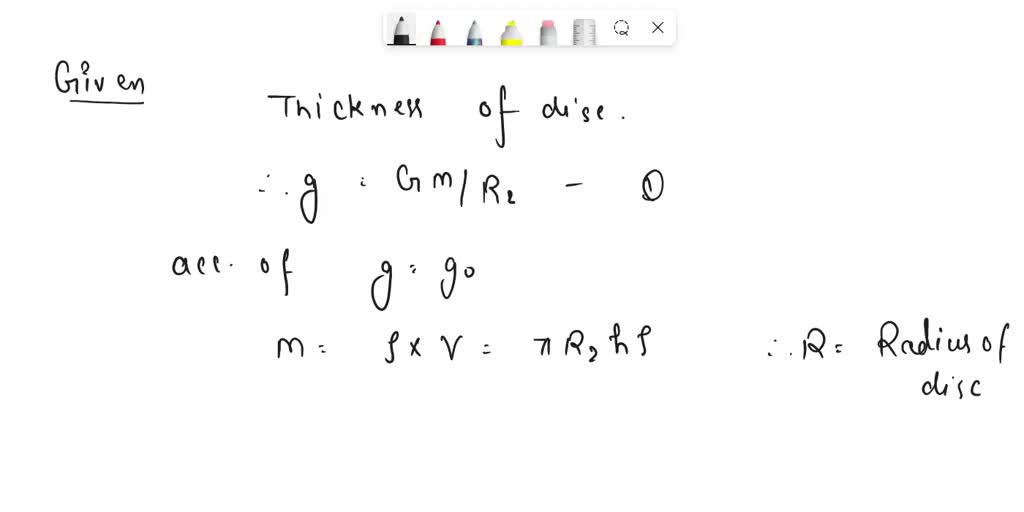 Given
Thickness of disc.
∴ g = Gm/R2 - ①
acc. of g = g0
m = ρ x V = π R2 h ρ ∴ R = Radius of
disc